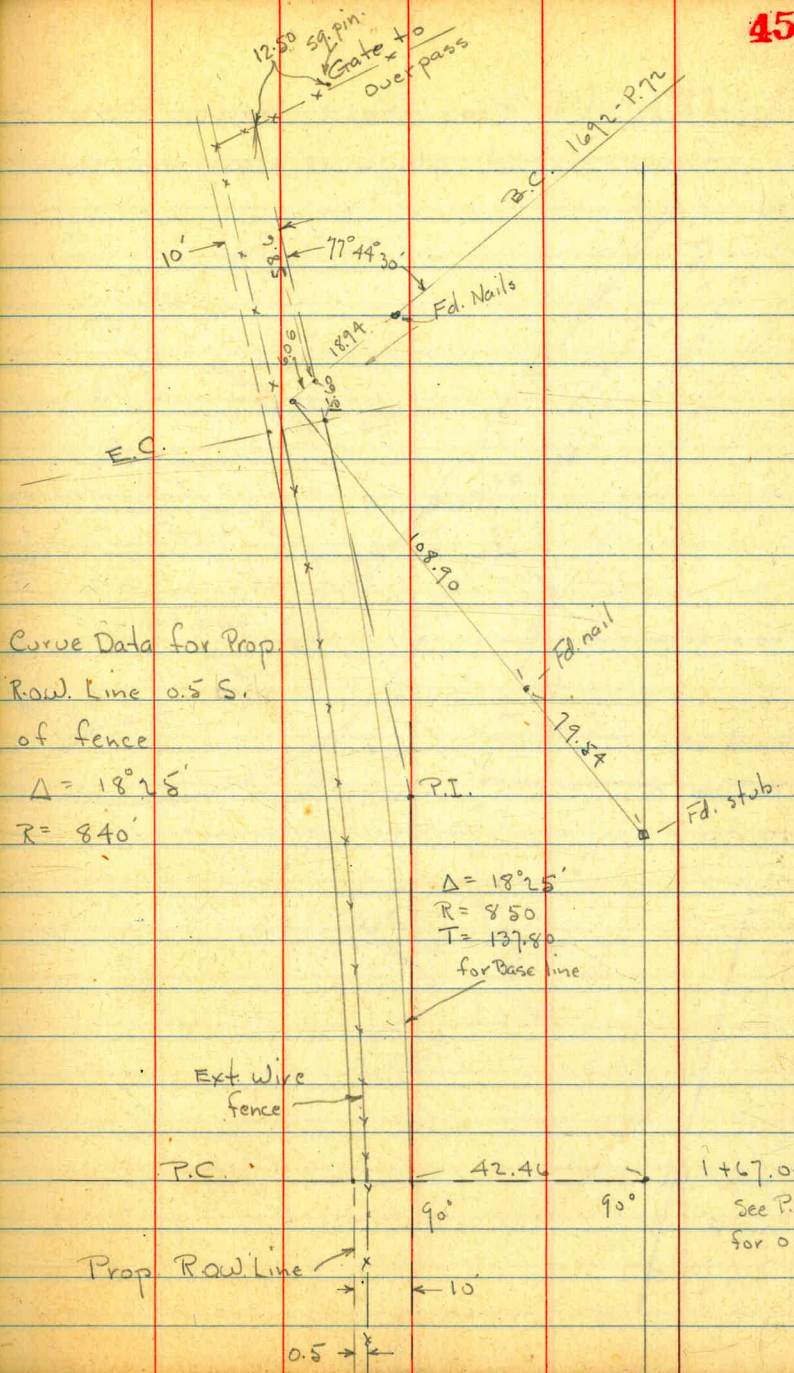 45
12.50
sq. pin.
Gate to
overpass
B.C. 1692-P.72
10'
58.6
77° 44' 30"
Fd. Nails
18.94
6.06
15.60
E.C.
108.90
Fd. nail
79.54
Fd. stub
Curve Data for Prop.
R.O.W. Line 0.5 S.
of fence
Δ = 18°25'
R = 840'
P.I.
Δ = 18°25'
R = 850
T = 137.80
for Base line
Ext. Wire
fence
P.C.
42.46
1+67.0
90°
90°
See P.
for o
Prop. R.O.W. Line
10'
0.5